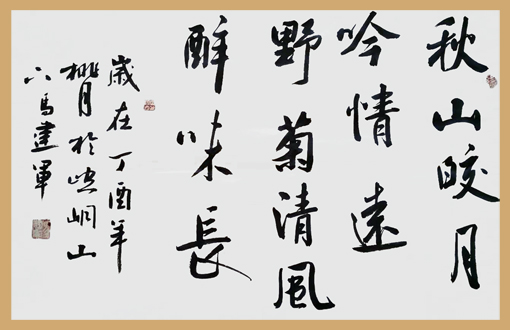 秋山皎月
吟情遠
野菊清風
醉味長
歲在丁酉年
桃月於崆峒山
下馬建軍